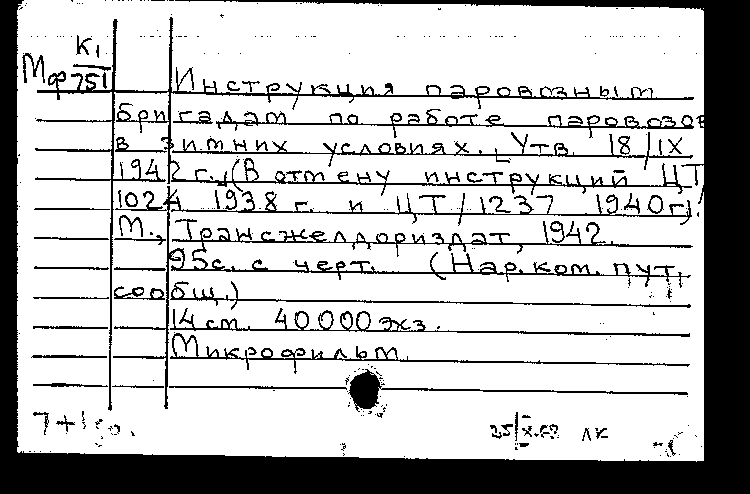 Мф К1/751
Инструкция паровозным
бригадам по работе паровозов
в зимних условиях. Утв. 18/IX
1942 г. (В отмену инструкций ЦТ/
1024 1938 г. и ЦТ/1237 1940г).
М., Трансжелдориздат, 1942.
95с. с черт. (Нар. ком. пут.
сообщ.)
14 см. 40000 экз.
Микрофильм.
25/X.63 ЛК